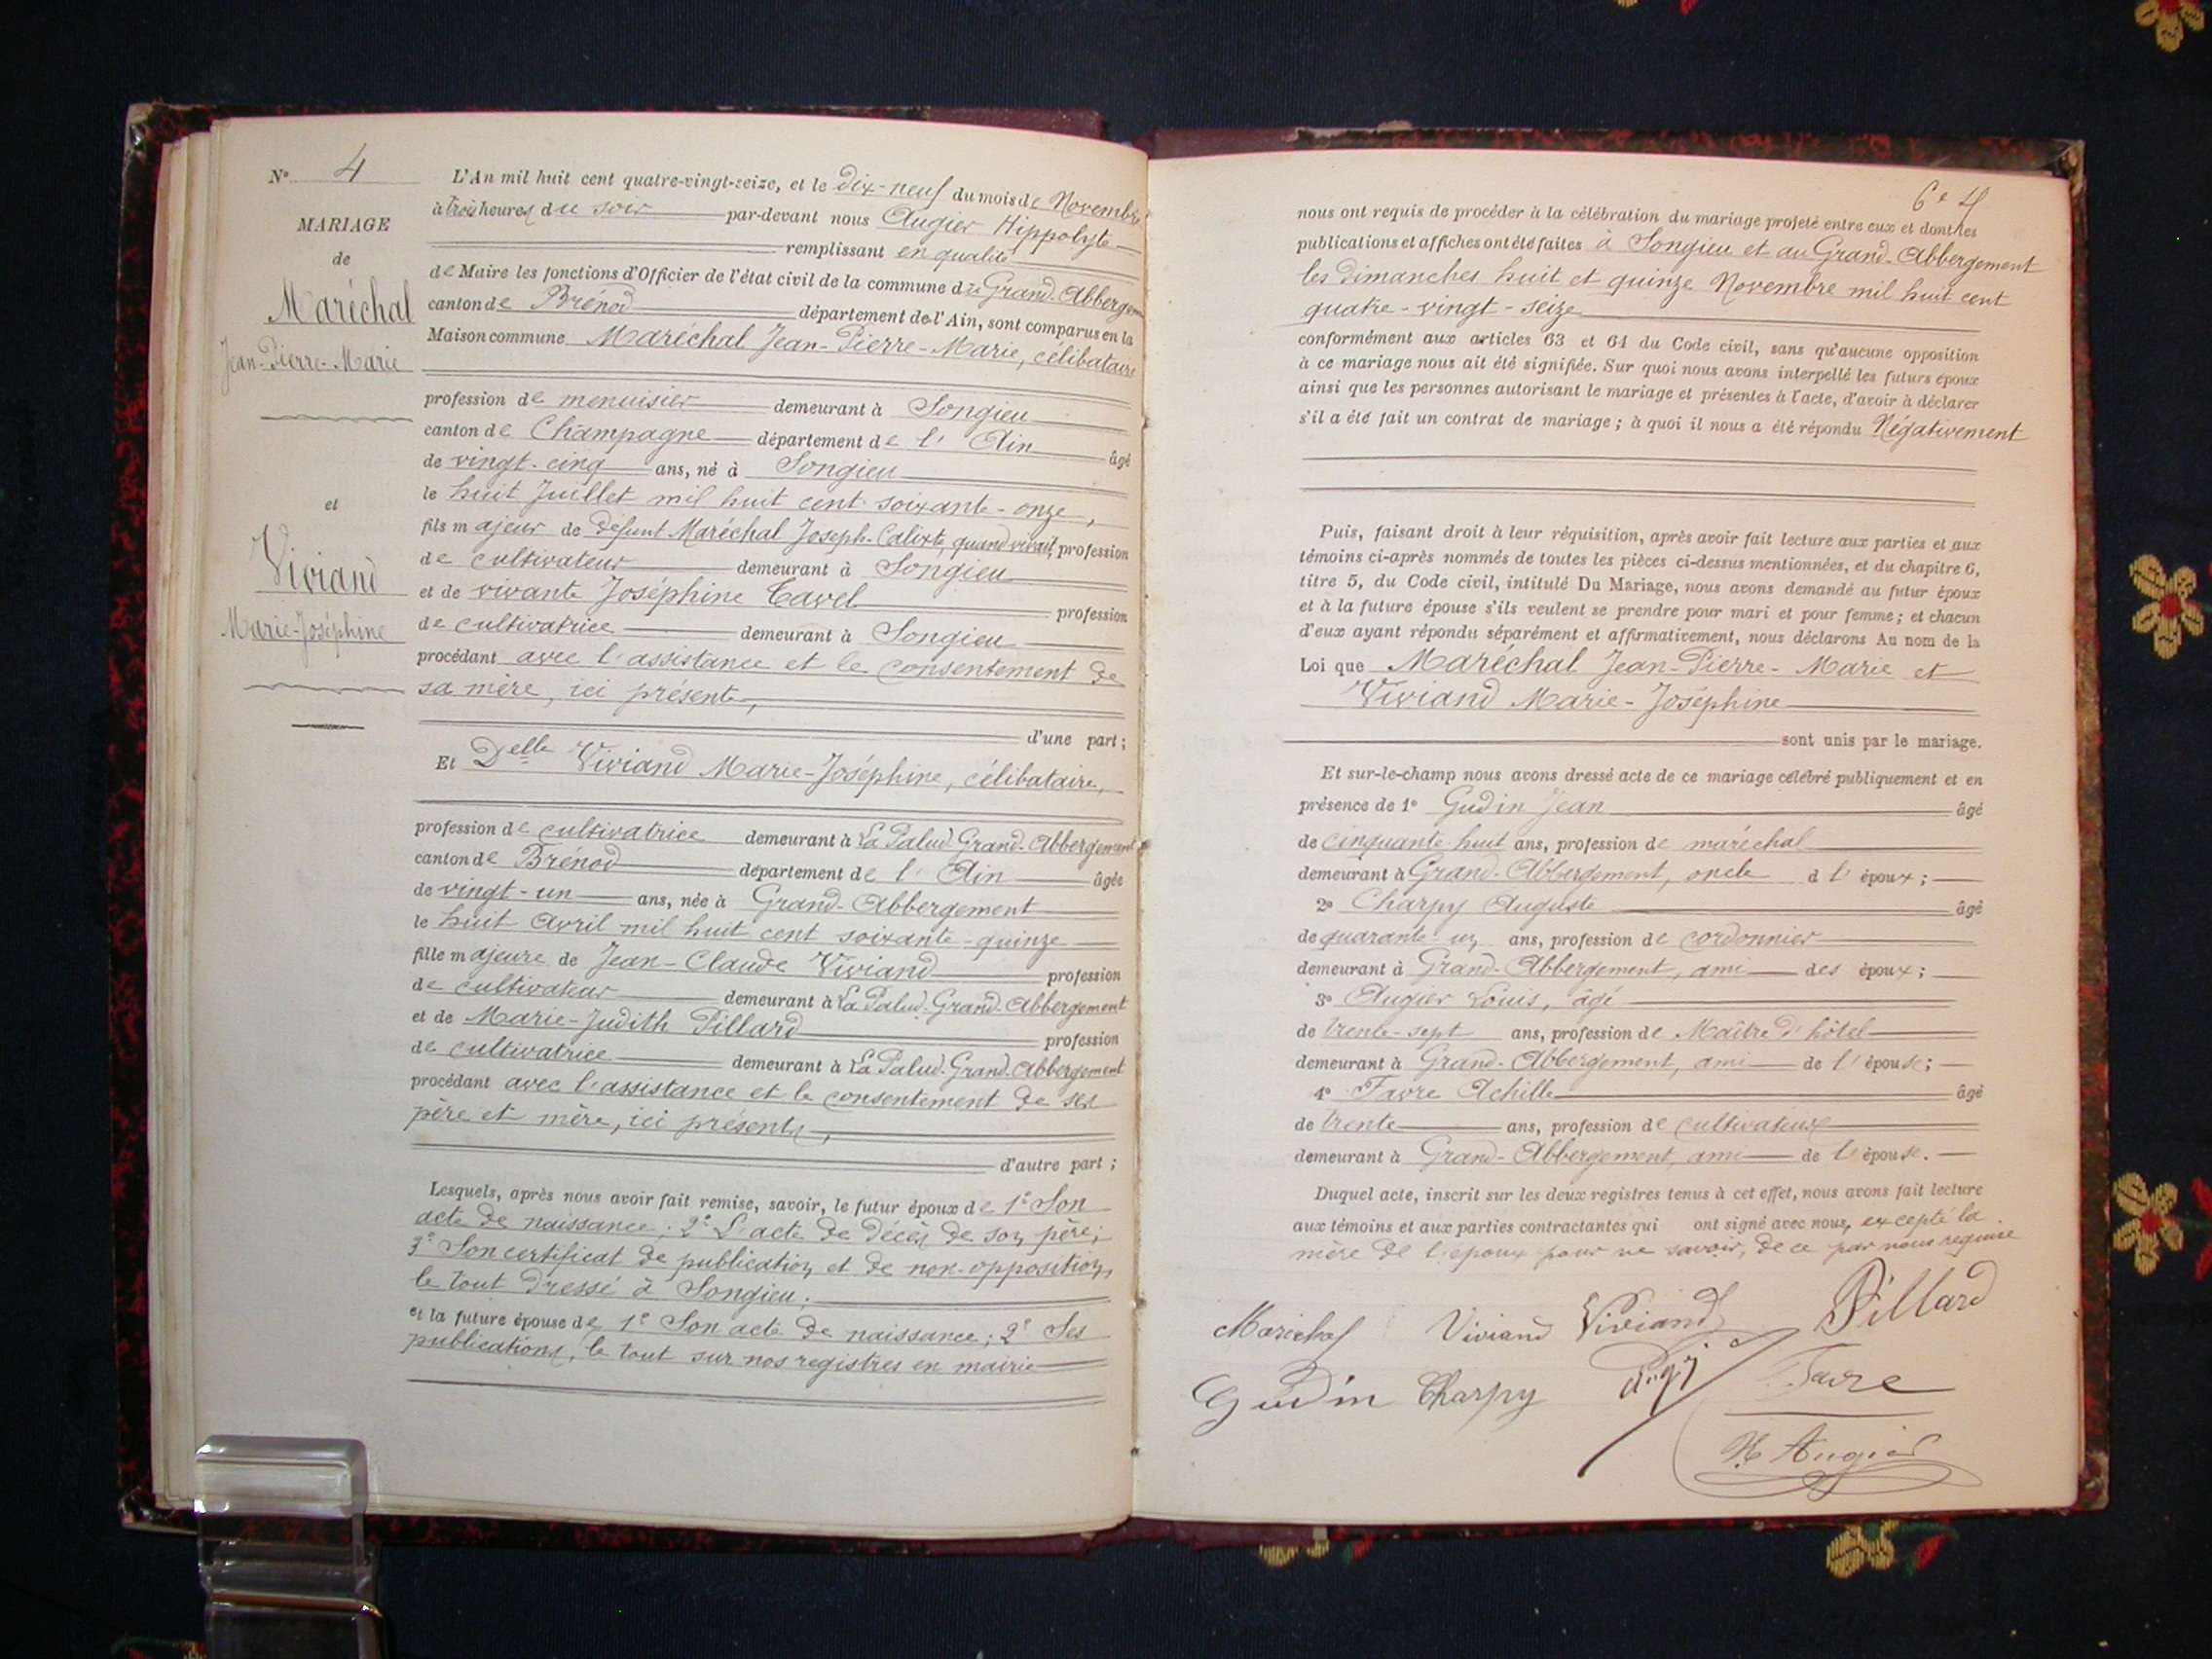 N° 4
MARIAGE
de
Maréchal
Jean-Pierre-Marie
et
Viviand
Marie-Joséphine
L'An mil huit cent quatre-vingt-seize, et le dix-neuf du mois de Novembre
à trois heures du soir par-devant nous Augier Hippolyte
remplissant en qualité
de Maire les fonctions d'Officier de l'état civil de la commune de Grand-Abbergem
canton de Brénod département de l'Ain, sont comparus en la
Maison commune Maréchal Jean-Pierre-Marie, célibataire
profession de menuisier demeurant à Songieu
canton de Champagne département de l'Ain âgé
de vingt-cinq ans, né à Songieu
le huit Juillet mil huit cent soixante-onze,
fils majeur de défunt Maréchal Joseph-Calixte, quand vivait, profession
de cultivateur demeurant à Songieu
et de vivante Joséphine Tavel profession
de cultivatrice demeurant à Songieu
procédant avec l'assistance et le consentement de
sa mère, ici présente,
d'une part ;
Et Delle Viviand Marie-Joséphine, célibataire,
profession de cultivatrice demeurant à La Palud-Grand-Abbergement
canton de Brénod département de l'Ain âgée
de vingt-un ans, née à Grand-Abbergement
le huit Avril mil huit cent soixante-quinze
fille majeure de Jean-Claude Viviand profession
de cultivateur demeurant à La Palud-Grand-Abbergement
et de Marie-Judith Pillard profession
de cultivatrice demeurant à La Palud-Grand-Abbergement
procédant avec l'assistance et le consentement de ses
père et mère, ici présents,
d'autre part ;
Lesquels, après nous avoir fait remise, savoir, le futur époux de 1° Son
acte de naissance ; 2° L'acte de décès de son père ;
3° Son certificat de publication et de non-opposition,
le tout dressé à Songieu ;
et la future épouse de 1° Son acte de naissance ; 2° Ses
publications, le tout sur nos registres en mairie
6e
nous ont requis de procéder à la célébration du mariage projeté entre eux et dont les
publications et affiches ont été faites à Songieu et au Grand-Abbergement
les dimanches huit et quinze Novembre mil huit cent
quatre-vingt-seize
conformément aux articles 63 et 64 du Code civil, sans qu'aucune opposition
à ce mariage nous ait été signifiée. Sur quoi nous avons interpellé les futurs époux
ainsi que les personnes autorisant le mariage et présentes à l'acte, d'avoir à déclarer
s'il a été fait un contrat de mariage ; à quoi il nous a été répondu Négativement
Puis, faisant droit à leur réquisition, après avoir fait lecture aux parties et aux
témoins ci-après nommés de toutes les pièces ci-dessus mentionnées, et du chapitre 6,
titre 5, du Code civil, intitulé Du Mariage, nous avons demandé au futur époux
et à la future épouse s'ils veulent se prendre pour mari et pour femme ; et chacun
d'eux ayant répondu séparément et affirmativement, nous déclarons Au nom de la
Loi que Maréchal Jean-Pierre-Marie et
Viviand Marie-Joséphine
sont unis par le mariage.
Et sur-le-champ nous avons dressé acte de ce mariage célébré publiquement et en
présence de 1° Gudin Jean âgé
de cinquante-huit ans, profession de maréchal
demeurant à Grand-Abbergement, oncle d l'époux ;
2° Charpy Auguste âgé
de quarante-un ans, profession de cordonnier
demeurant à Grand-Abbergement, ami des époux ;
3° Augier Louis, âgé
de trente-sept ans, profession de Maître d'hôtel
demeurant à Grand-Abbergement, ami de l'épouse ;
4° Favre Achille âgé
de trente ans, profession de cultivateur
demeurant à Grand-Abbergement, ami de l'épouse.
Duquel acte, inscrit sur les deux registres tenus à cet effet, nous avons fait lecture
aux témoins et aux parties contractantes qui ont signé avec nous, excepté la
mère de l'époux pour ne savoir, de ce par nous requise
Maréchal Viviand Viviand Pillard
Gudin Charpy Favre
H Augier